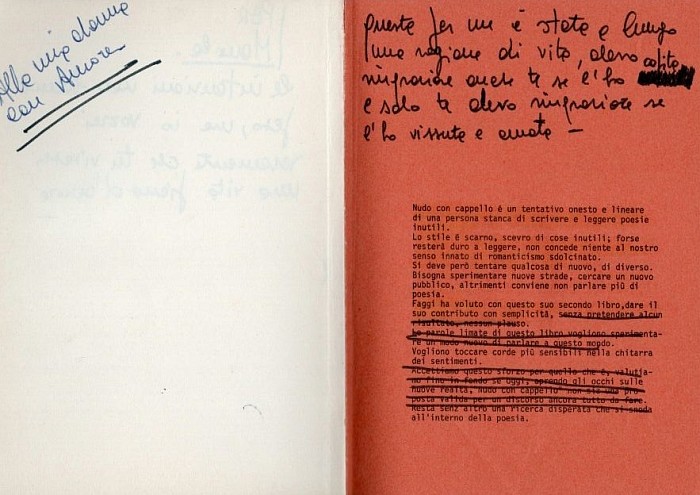 Alla mia donna
con Amore
Questa per me è stata e lungo
una ragione di vita, devo
ringraziare anche te se l'ho capita
e solo te devo ringraziare se
l'ho vissuta e amata —
Nudo con cappello é un tentativo onesto e lineare
di una persona stanca di scrivere e leggere poesie
inutili.
Lo stile é scarno, scevro di cose inutili; forse
resterà duro a leggere, non concede niente al nostro
senso innato di romanticismo sdolcinato.
Si deve però tentare qualcosa di nuovo, di diverso.
Bisogna sperimentare nuove strade, cercare un nuovo
pubblico, altrimenti conviene non parlare più di
poesia.
Faggi ha voluto con questo suo secondo libro,dare il
suo contributo con semplicità, senza pretendere alcun
risultato, nessun plauso.
Le parole limate di questo libro vogliono sperimenta-
re un modo nuovo di parlare a questo mondo.
Vogliono toccare corde più sensibili nella chitarra
dei sentimenti.
Accettiamo questo sforzo per quello che é, valutia-
mo fino in fondo se oggi, aprendo gli occhi sulle
nuove realtà, Nudo con cappello non sia una pro-
posta valida per un discorso ancora tutto da fare.
Resta senz'altro una ricerca disperata che si snoda
all'interno della poesia.